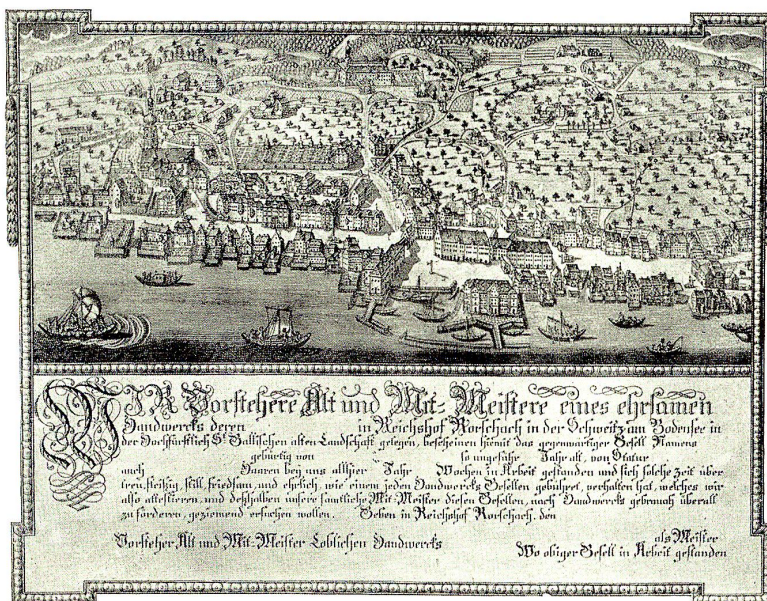 WIR Vorstehere Alt und Mit-Meistere eines ehrsamen
Handwercks deren in Reichshof Rorschach in der Schweitz am Bodensee in
der Hochfürstlich St. Gallischen alten Landschaft gelegen, bescheinen hiemit das gegenwärtiger Gesell Namens
gebürtig von so ungefähr Jahr alt, von Statur
auch Haaren bey uns allhier Jahr Wochen in Arbeit gestanden und sich solche Zeit über
treu, fleißig, still, friedsam, und ehrlich, wie einem jeden Handwercks Gesellen gebühret, verhalten hat, welches wir
also attestieren, und deßhalben unsere samtliche Mit-Meister diesen Gesellen, nach Handwercks gebrauch überall
zu förderen, geziemend ersuchen wollen. Geben in Reichshof Rorschach, den
Vorsteher, Alt und Mit-Meister Loblichen Handwercks als Meister
Wo obiger Gesell in Arbeit gestanden